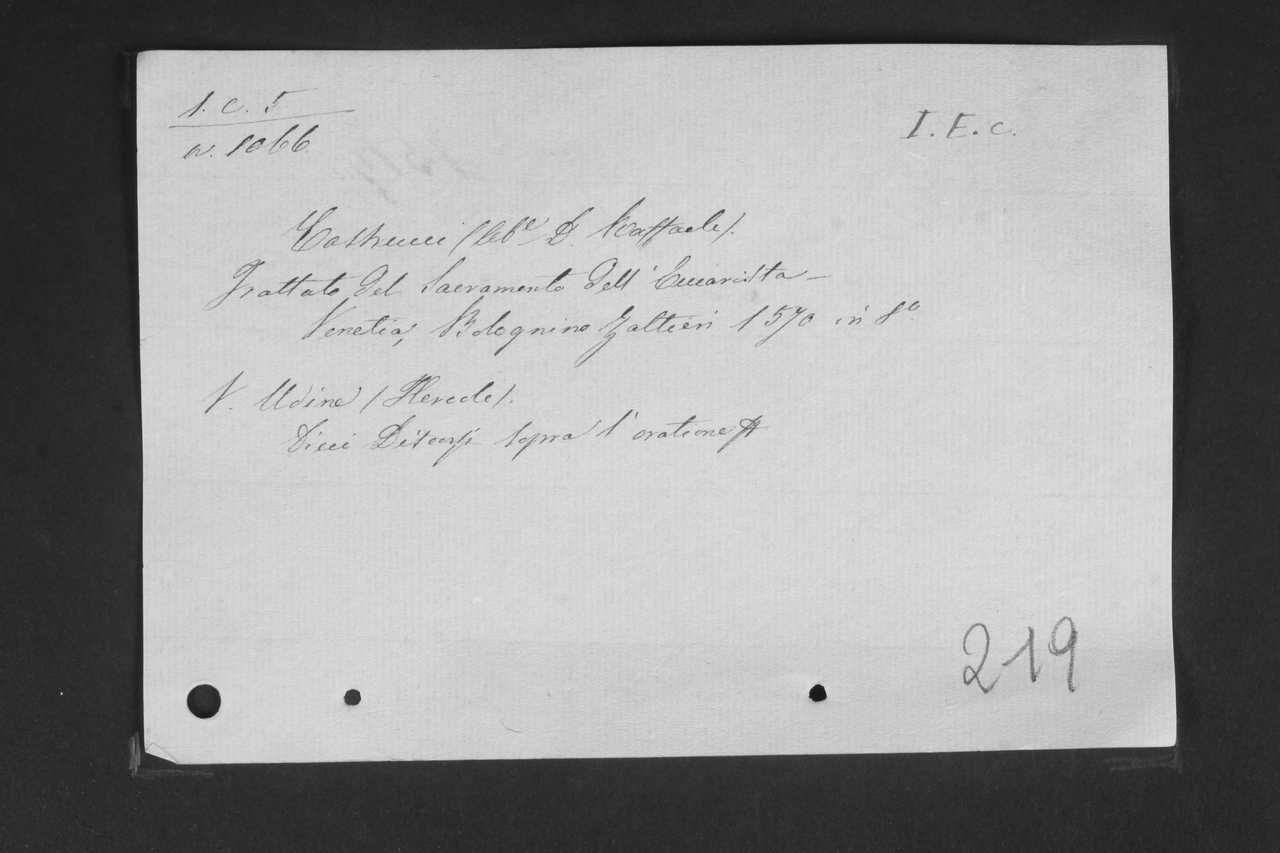 1. C. 5
a. 1066
I. E. C.
Castrucci (Abe D. Raffaele).
Trattato del Sacramento dell' Eucaristia -
Venetia, Bolognino Zaltieri 1570 in 8o
V. Udine (Hercole).
Dieci Discorsi sopra l'oratione
219